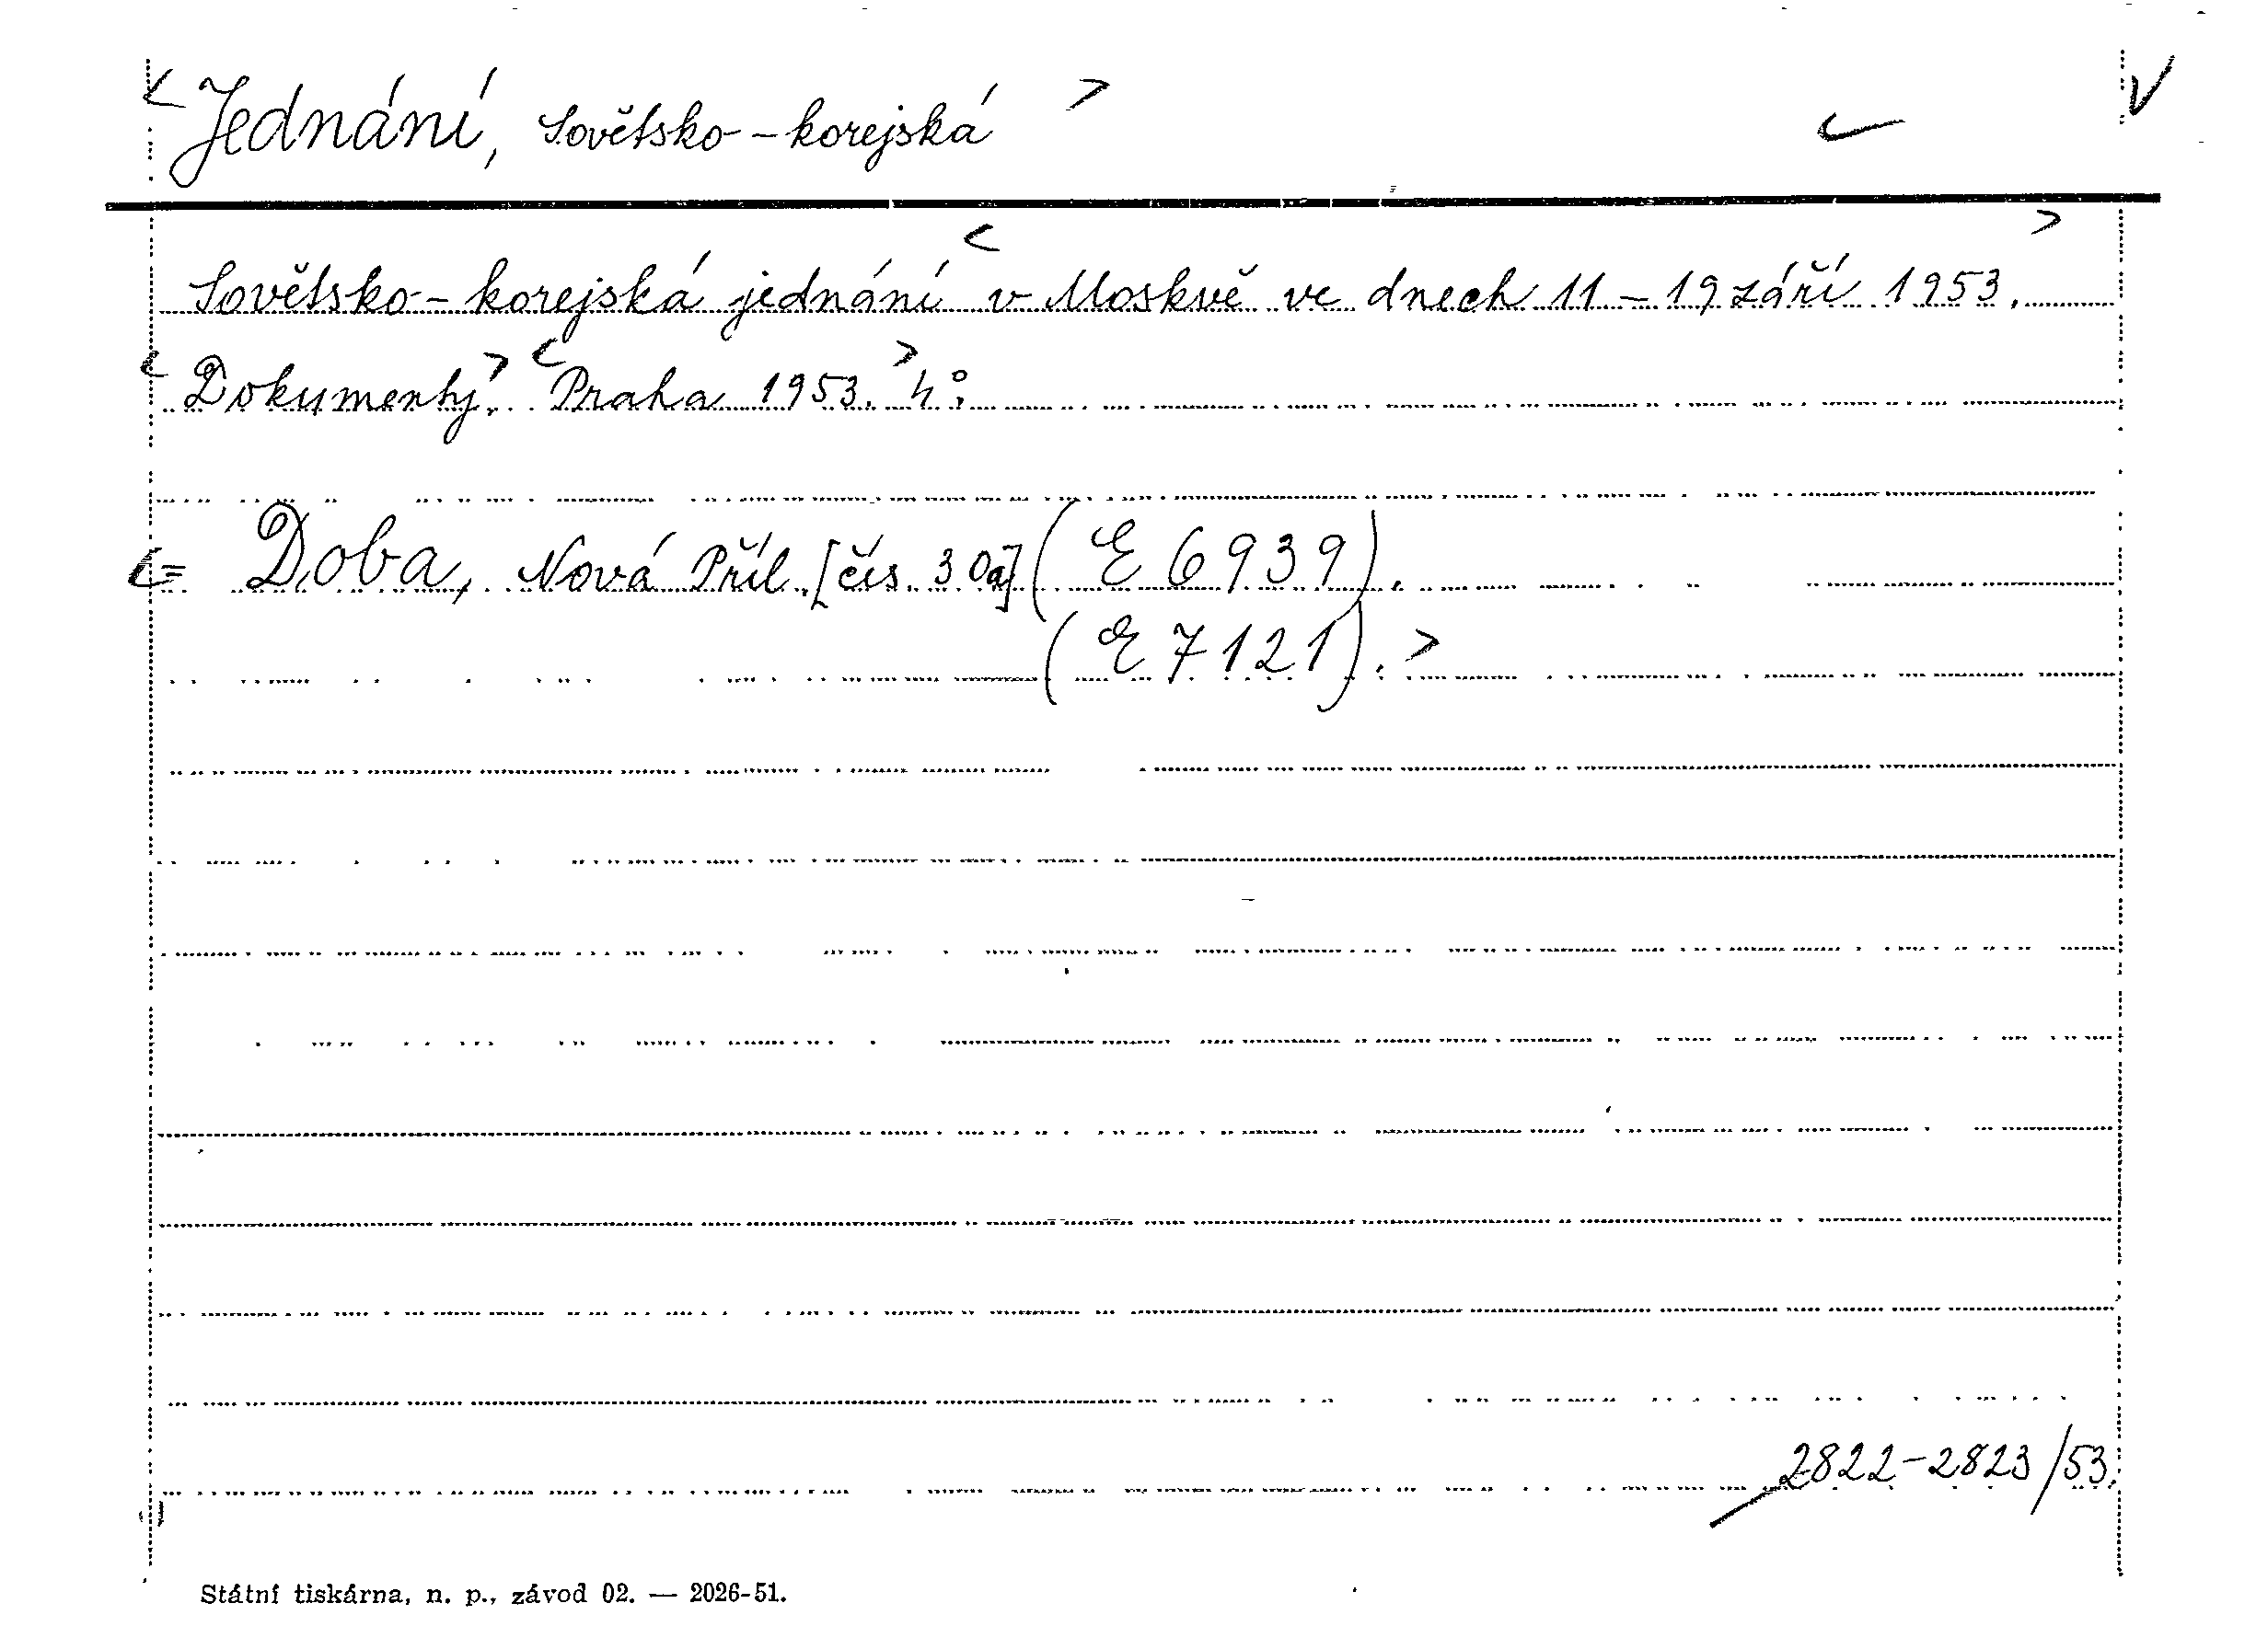 < Jednání, Sovětsko-korejská >
Sovětsko-korejská jednání < v Moskvě ve dnech 11-19 září 1953. >
< Dokumenty. > < Praha 1953. > 4°.
<= Doba, Nová Příl. [čís. 30a] (E 6939).
(E 7121). >
2822-2823/53.
Státní tiskárna, n. p., závod 02. — 2026-51.